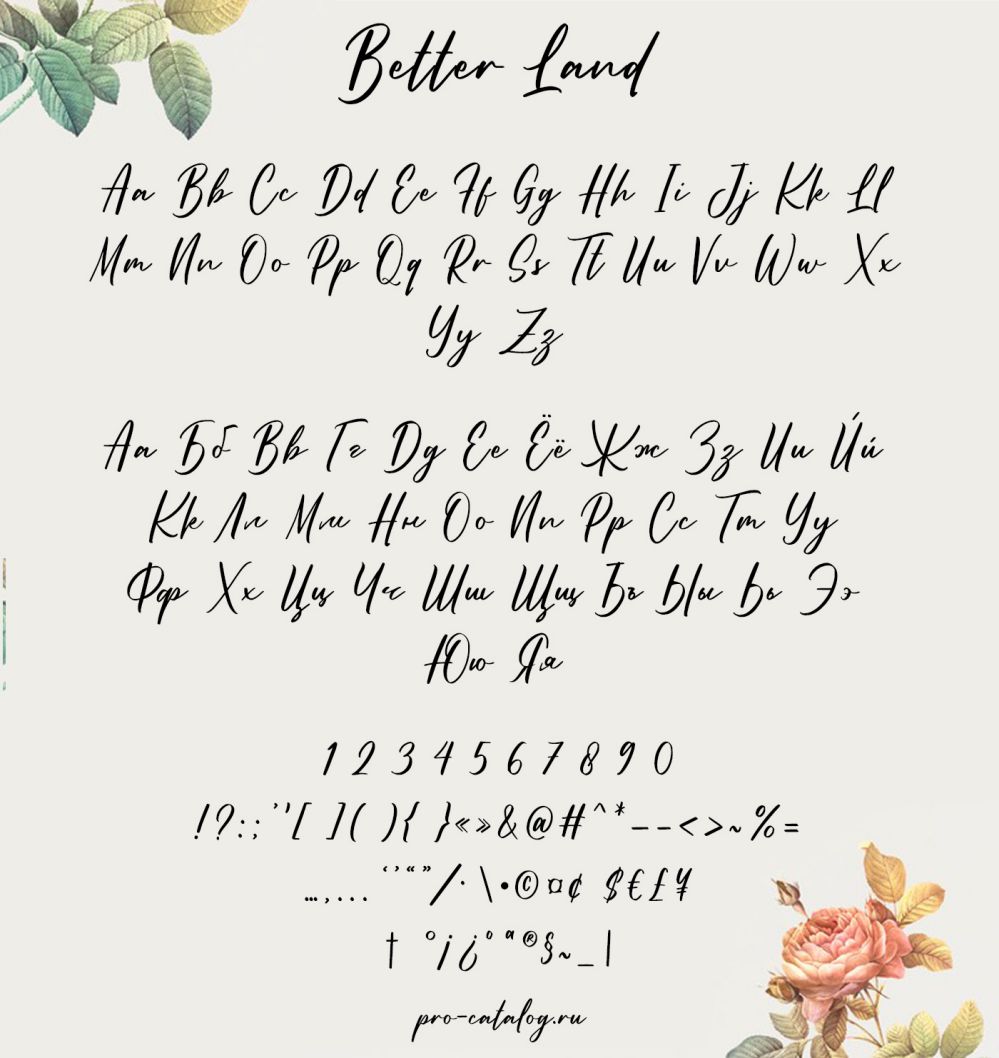 Better Land
Aa Bb Cc Dd Ee Ff Gg Hh Ii Jj Kk Ll
Mm Nn Oo Pp Qq Rr Ss Tt Uu Vv Ww Xx
Yy Zz
Аа Бб Вв Гг Дд Ее Ёё Жж Зз Ии Йй
Кк Лл Мм Нн Оо Пп Рр Сс Тт Уу
Фф Хх Цц Чч Шш Щщ Ъъ Ыы Ьь Ээ
Юю Яя
1 2 3 4 5 6 7 8 9 0
!?:;''[ ]( ){ }«»&@#^*–-<>~%=
…,... ‘’“”/·\•©¤¢ $€£¥
† °¡¿ºª®§~_|
pro-catalog.ru